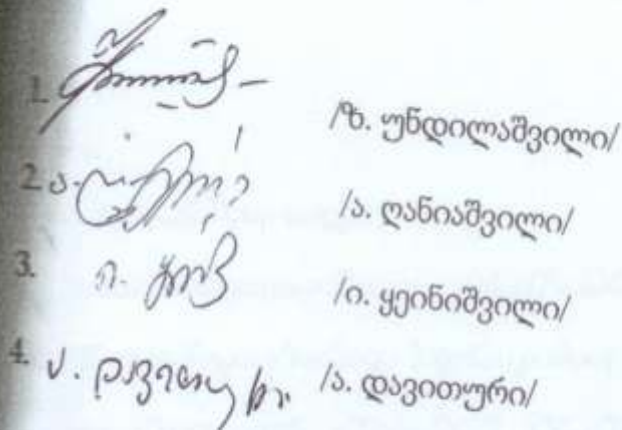 1. /ზ. უნდილაშვილი/
2. ა. /ა. ღანიაშვილი/
3. ი. /ი. ყეინიშვილი/
4. ა. დავითური /ა. დავითური/